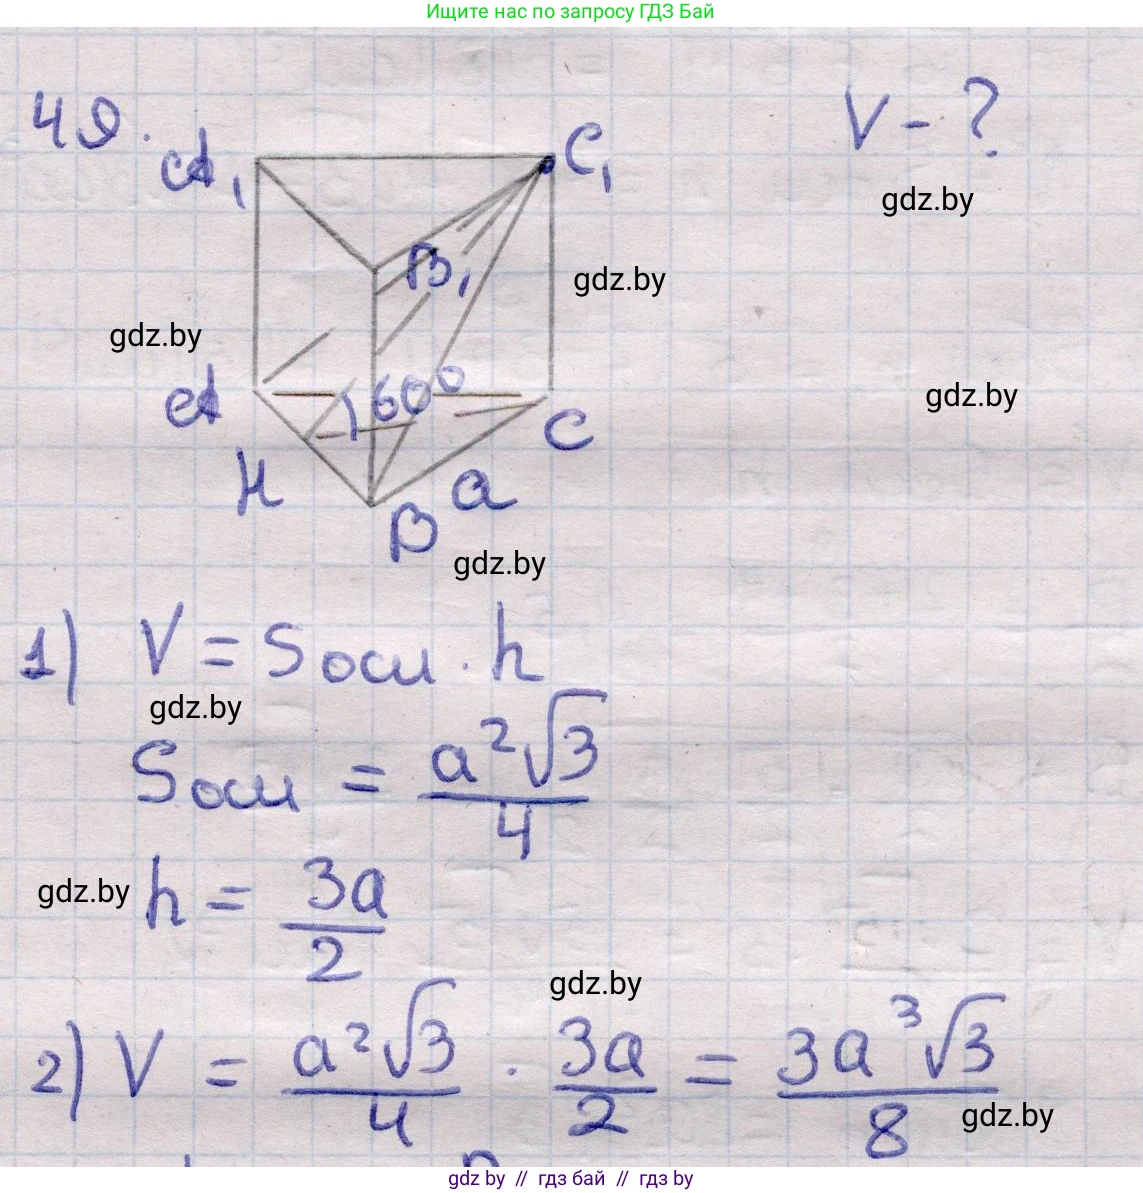 Ищите нас по запросу ГДЗ Бай
49.
V - ?
A₁
C₁
gdz.by
B₁
gdz.by
gdz.by
60°
A
gdz.by
C
H
a
B
gdz.by
1) V = Sосн · h
gdz.by
Sосн = a²√3/4
gdz.by
h = 3a/2
gdz.by
2) V = a²√3/4 · 3a/2 = 3a³√3/8
gdz.by
gdz by // гдз бай // гдз by